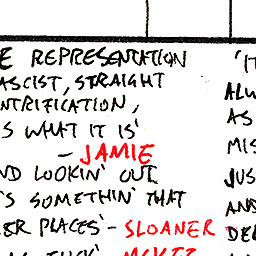 E REPRESENTATION
ASCIST, STRAIGHT
NTRIFICATION,
S WHAT IT IS'
- JAMIE
ND LOOKIN' OUT
'S SOMETHIN' THAT
ER PLACES' - SLOANER
'IT
ALW
AS
MIS
JUS
AND
DE